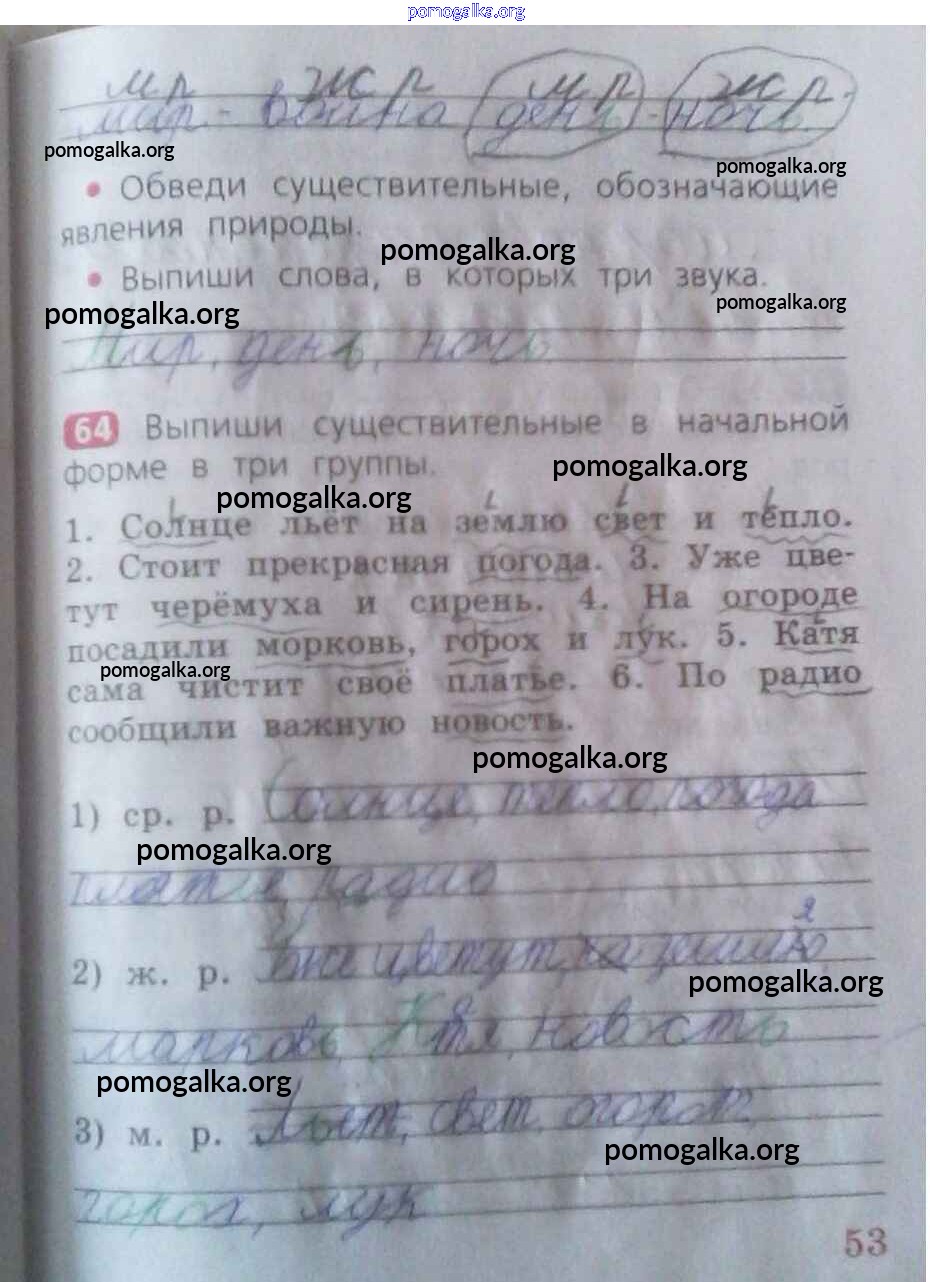 pomogalka.org
м р ж р м р ж р.
мир - война день - ночь
pomogalka.org
pomogalka.org
• Обведи существительные, обозначающие
явления природы.
pomogalka.org
• Выпиши слова, в которых три звука.
pomogalka.org
pomogalka.org
Мир, день, ночь
64 Выпиши существительные в начальной
форме в три группы.
pomogalka.org
pomogalka.org
1. Солнце льёт на землю свет и тепло.
2. Стоит прекрасная погода. 3. Уже цве-
тут черёмуха и сирень. 4. На огороде
посадили морковь, горох и лук. 5. Катя
pomogalka.org
сама чистит своё платье. 6. По радио
сообщили важную новость.
pomogalka.org
1) ср. р. Солнце, тепло, погода
pomogalka.org
платья, радио
я
2) ж. р. Уже цветут, на землю
pomogalka.org
марковь, Катя, новость
pomogalka.org
3) м. р. Льёт, свет, огород,
pomogalka.org
горох, лук
53